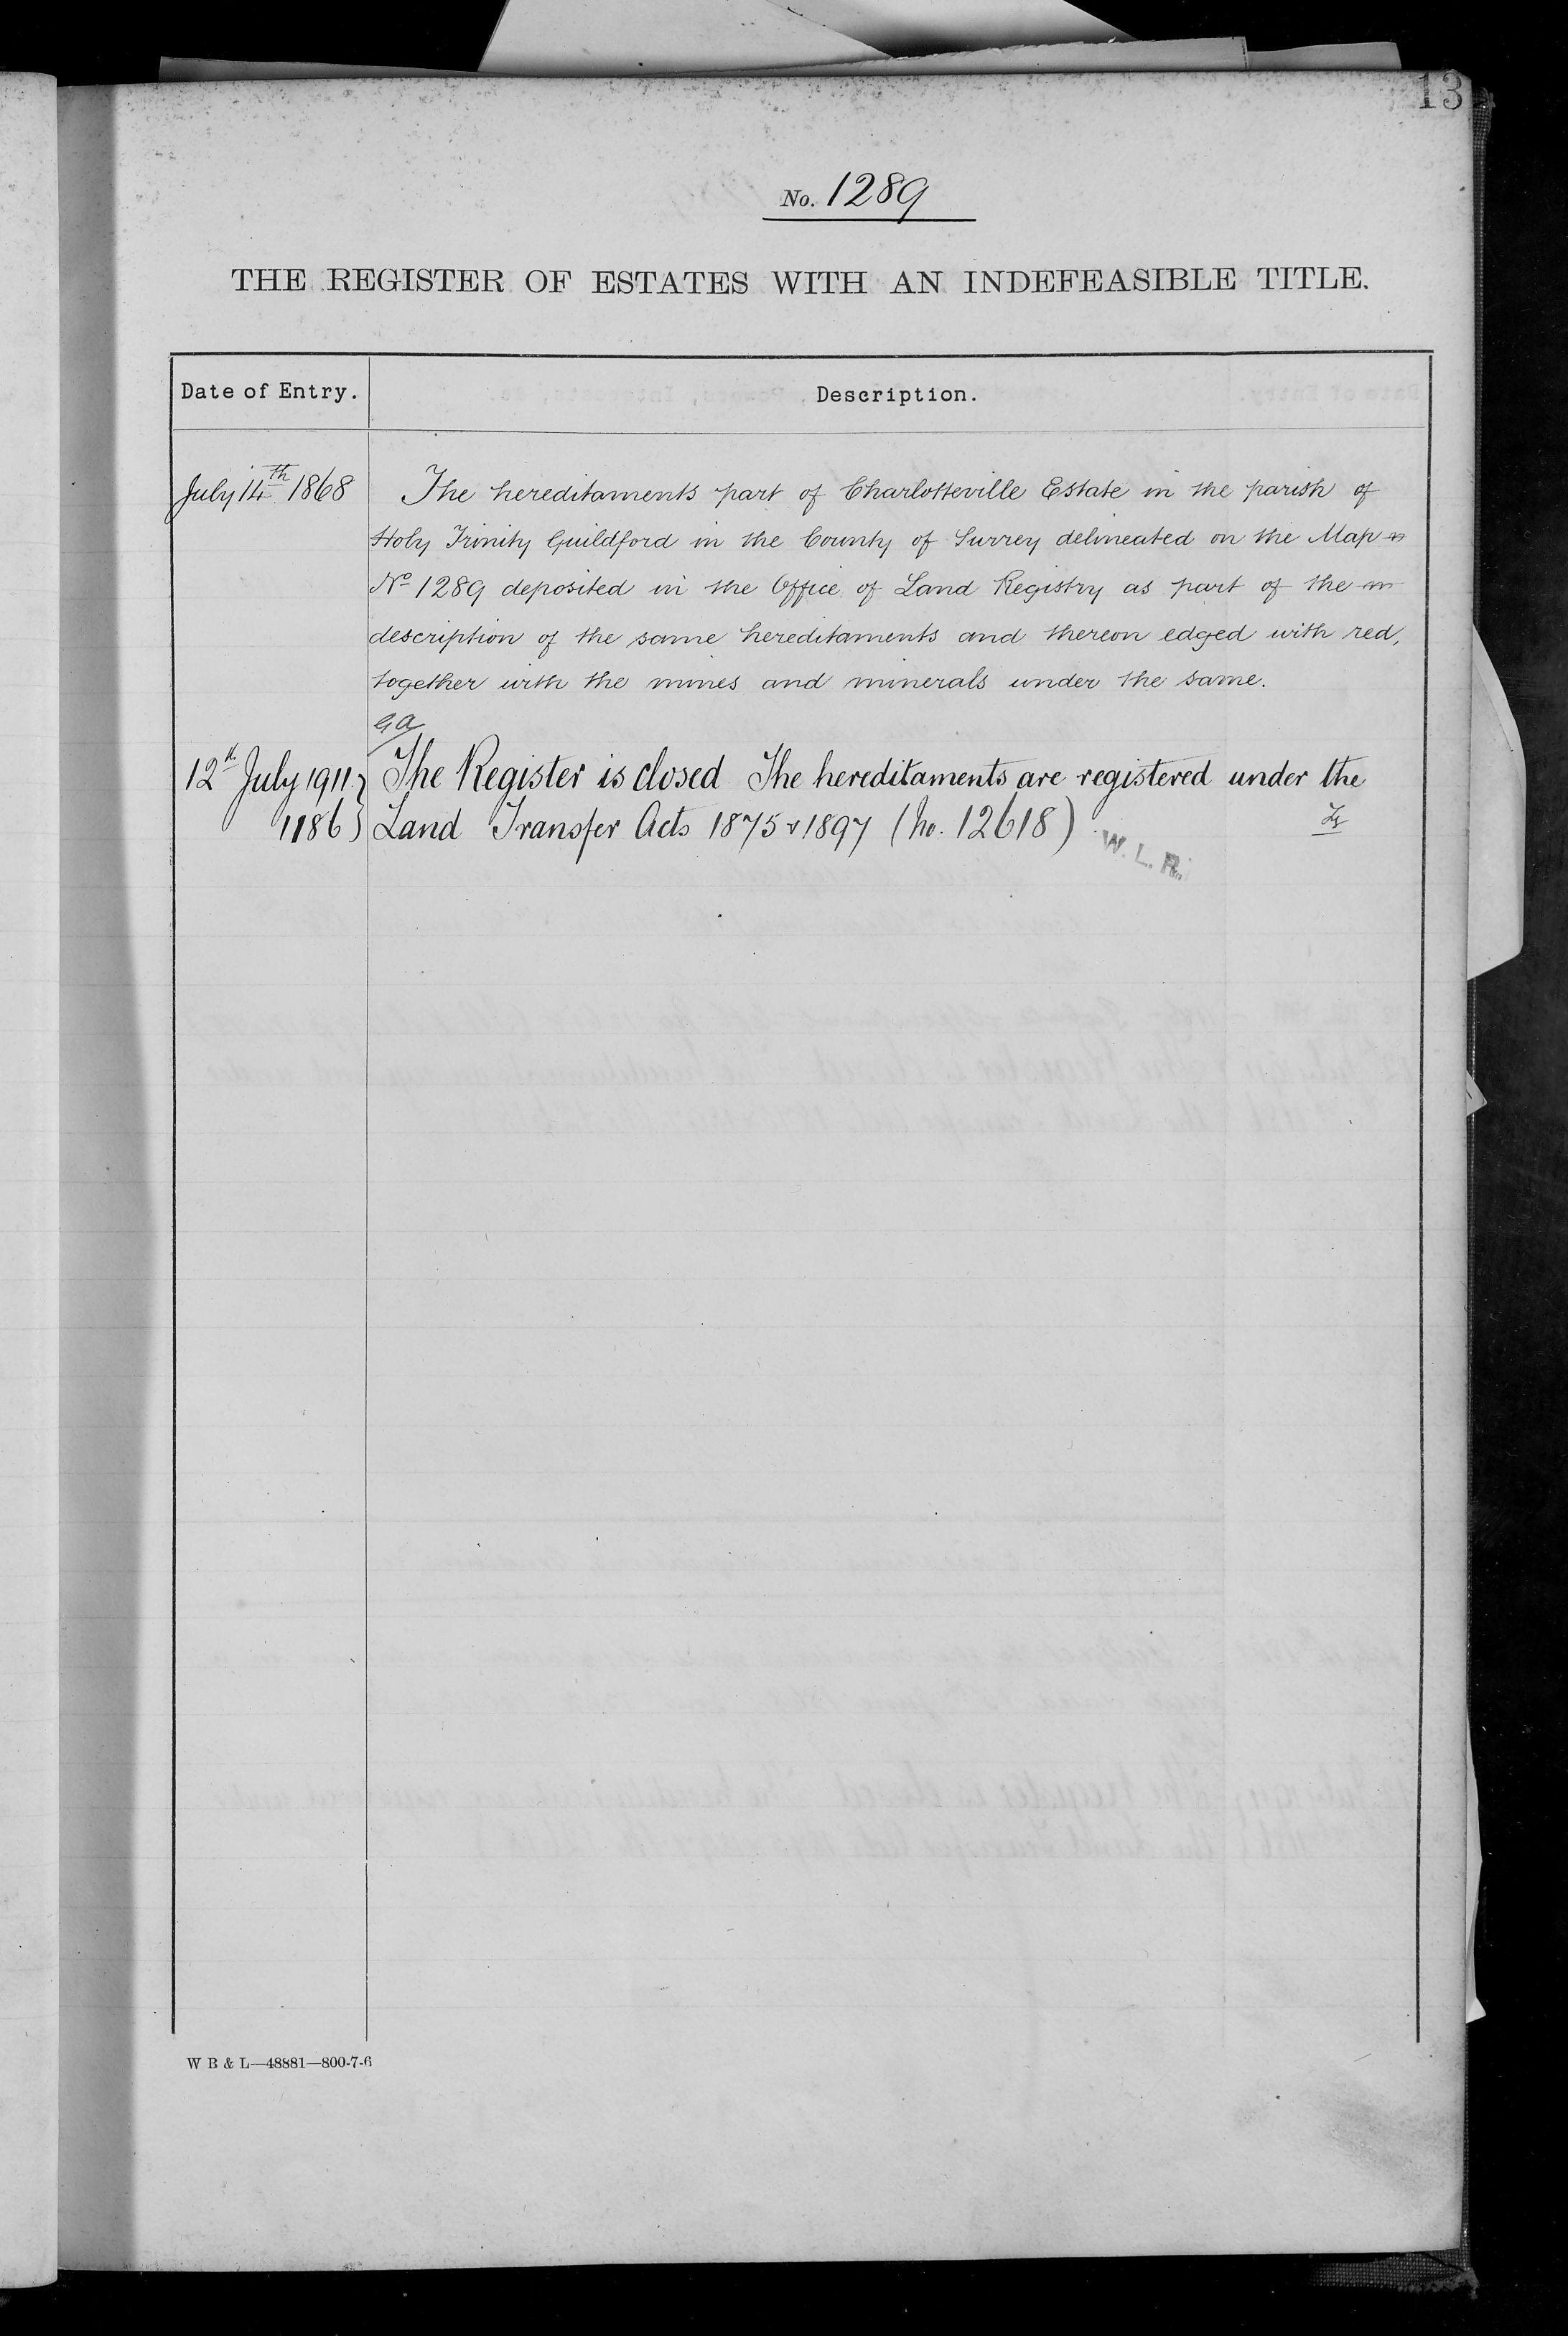 13
No. 1289
THE REGISTER OF ESTATES WITH AN INDEFEASIBLE TITLE.
Date of Entry. Description.
July 14th 1868 The hereditaments part of Charlotteville Estate in the parish of
Holy Trinity Guildford in the County of Surrey delineated on the Map
No 1289 deposited in the Office of Land Registry as part of the
description of the same hereditaments and thereon edged with red,
together with the mines and minerals under the same.
12th July 1911 } The Register is closed The hereditaments are registered under the
1186 } Land Transfer Acts 1875 & 1897 (No. 12618)
W. L. R.
W B & L—48881—800-7-6